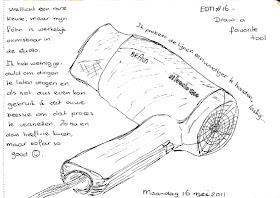 Wellicht een rare
keuze, maar mijn
föhn is werkelijk
onmisbaar in
de studio.
Ik heb weinig ge-
duld om dingen
te laten drogen en
als het dus even kan
gebruik ik dit ouwe
beessie om dat proces
te versnellen. Zo nu en
dan heeft-ie kuren,
maar so far so
good ☺.
EDM #16 -
Draw a
favorite
tool
Ik probeer de lijnen eenvoudiger te houden,
BRAUN
Maandag 16 mei 2011